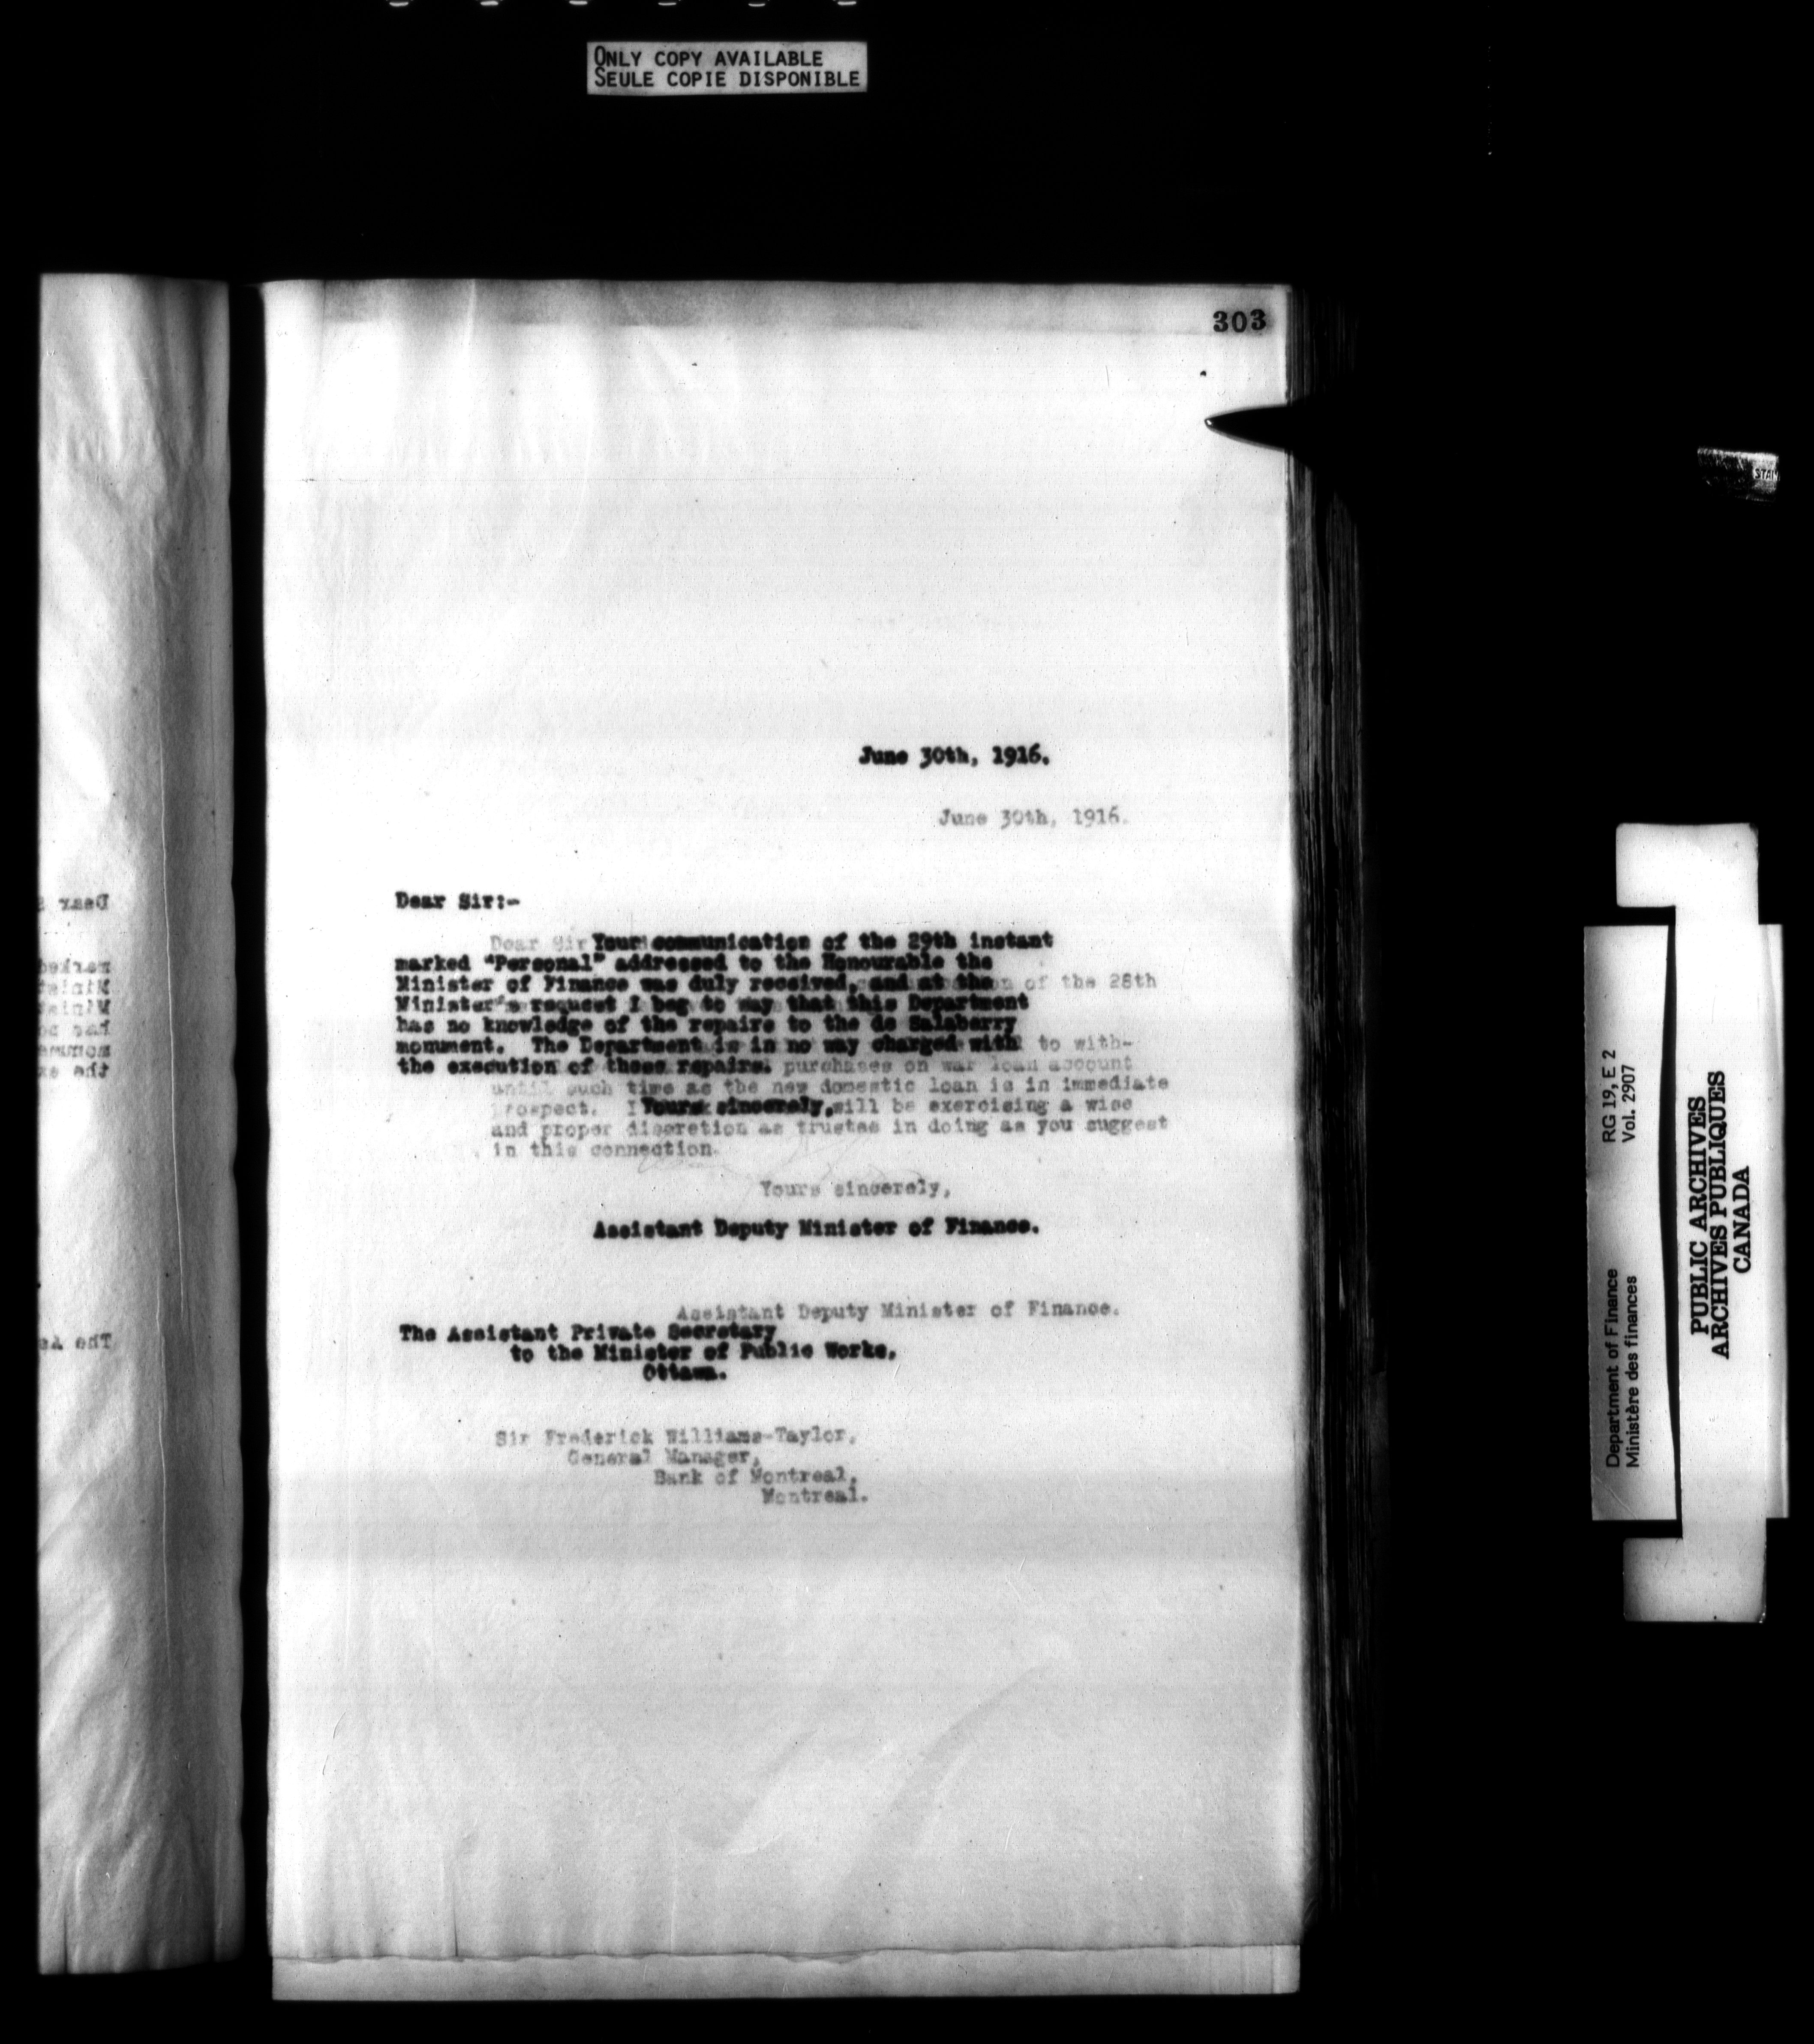 ONLY COPY AVAILABLE
SEULE COPIE DISPONIBLE
303
June 30th, 1916.
June 30th, 1916.
Dear Sir:-
Dear Sir
Your communication of the 29th instant
marked "Personal" addressed to the Honourable the
Minister of Finance was duly received, and at the
of the 28th
Minister's request I beg to say that this Department
has no knowledge of the repairs to the de Salaberry
monument. The Department is in no way charged with
to with-
the execution of these repairs.
purchases on war loan account
until such time as the new domestic loan is in immediate
prospect. I
Yours sincerely,
will be exercising a wise
and proper discretion as trustee in doing as you suggest
in this connection.
Yours sincerely,
Assistant Deputy Minister of Finance.
Assistant Deputy Minister of Finance.
The Assistant Private Secretary
to the Minister of Public Works,
Ottawa.
Sir Frederick Williams-Taylor,
General Manager,
Bank of Montreal,
Montreal.
Dear S
The As
STAN
Department of Finance RG 19, E 2
Ministère des finances Vol. 2907
PUBLIC ARCHIVES
ARCHIVES PUBLIQUES
CANADA